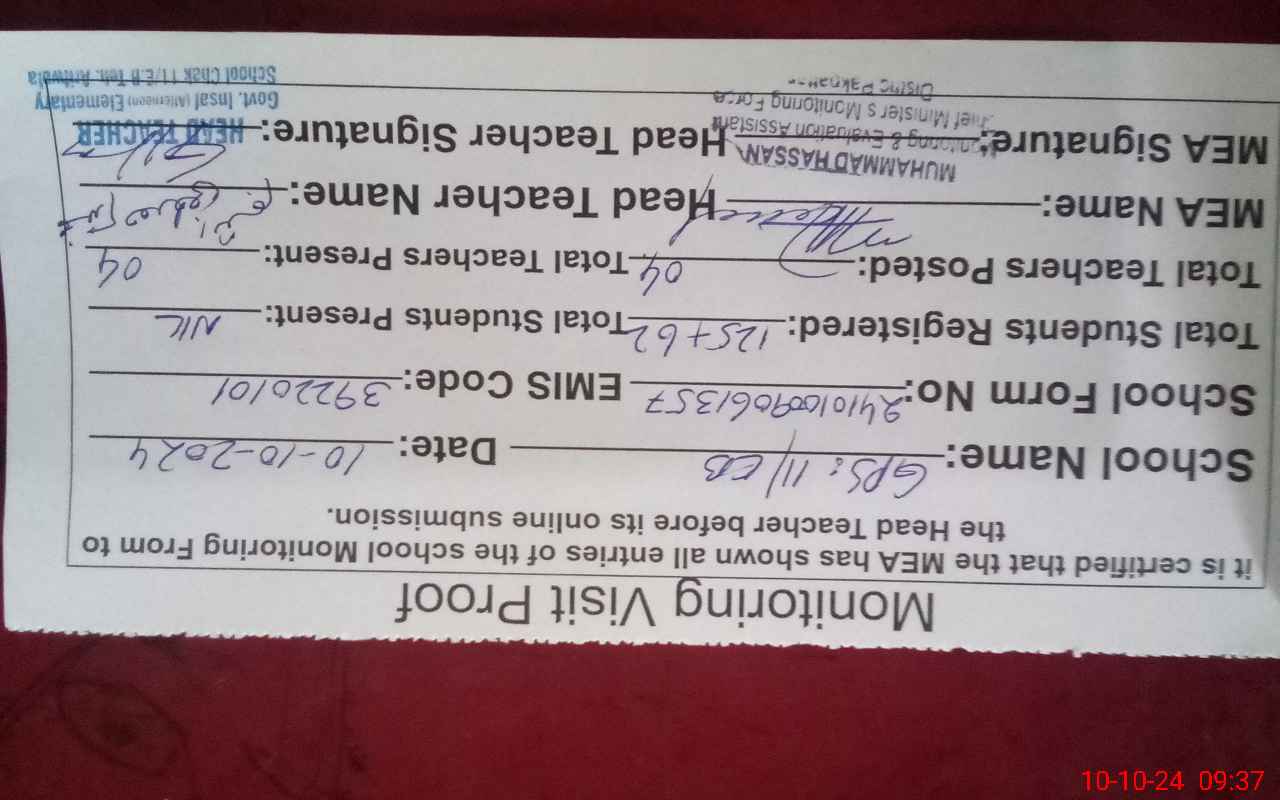 Monitoring Visit Proof
it is certified that the MEA has shown all entries of the school Monitoring From to
the Head Teacher before its online submission.
School Name: GPS: 11/EB Date: 10-10-2024
School Form No: 24101009061357 EMIS Code: 39220101
Total Students Registered: 125+62 Total Students Present: NIL
Total Teachers Posted: 04 Total Teachers Present: 04
MEA Name: Head Teacher Name:
MUHAMMAD HASSAN
MEA Signature: Head Teacher Signature: HEAD TEACHER
Monitoring & Evaluation Assistant
Chief Minister s Monitoring Force
Govt. Insaf (Afternoon) Elementary
District Pakpattan
School Chak 11/E.B Teh. Arifwala
10-10-24 09:37